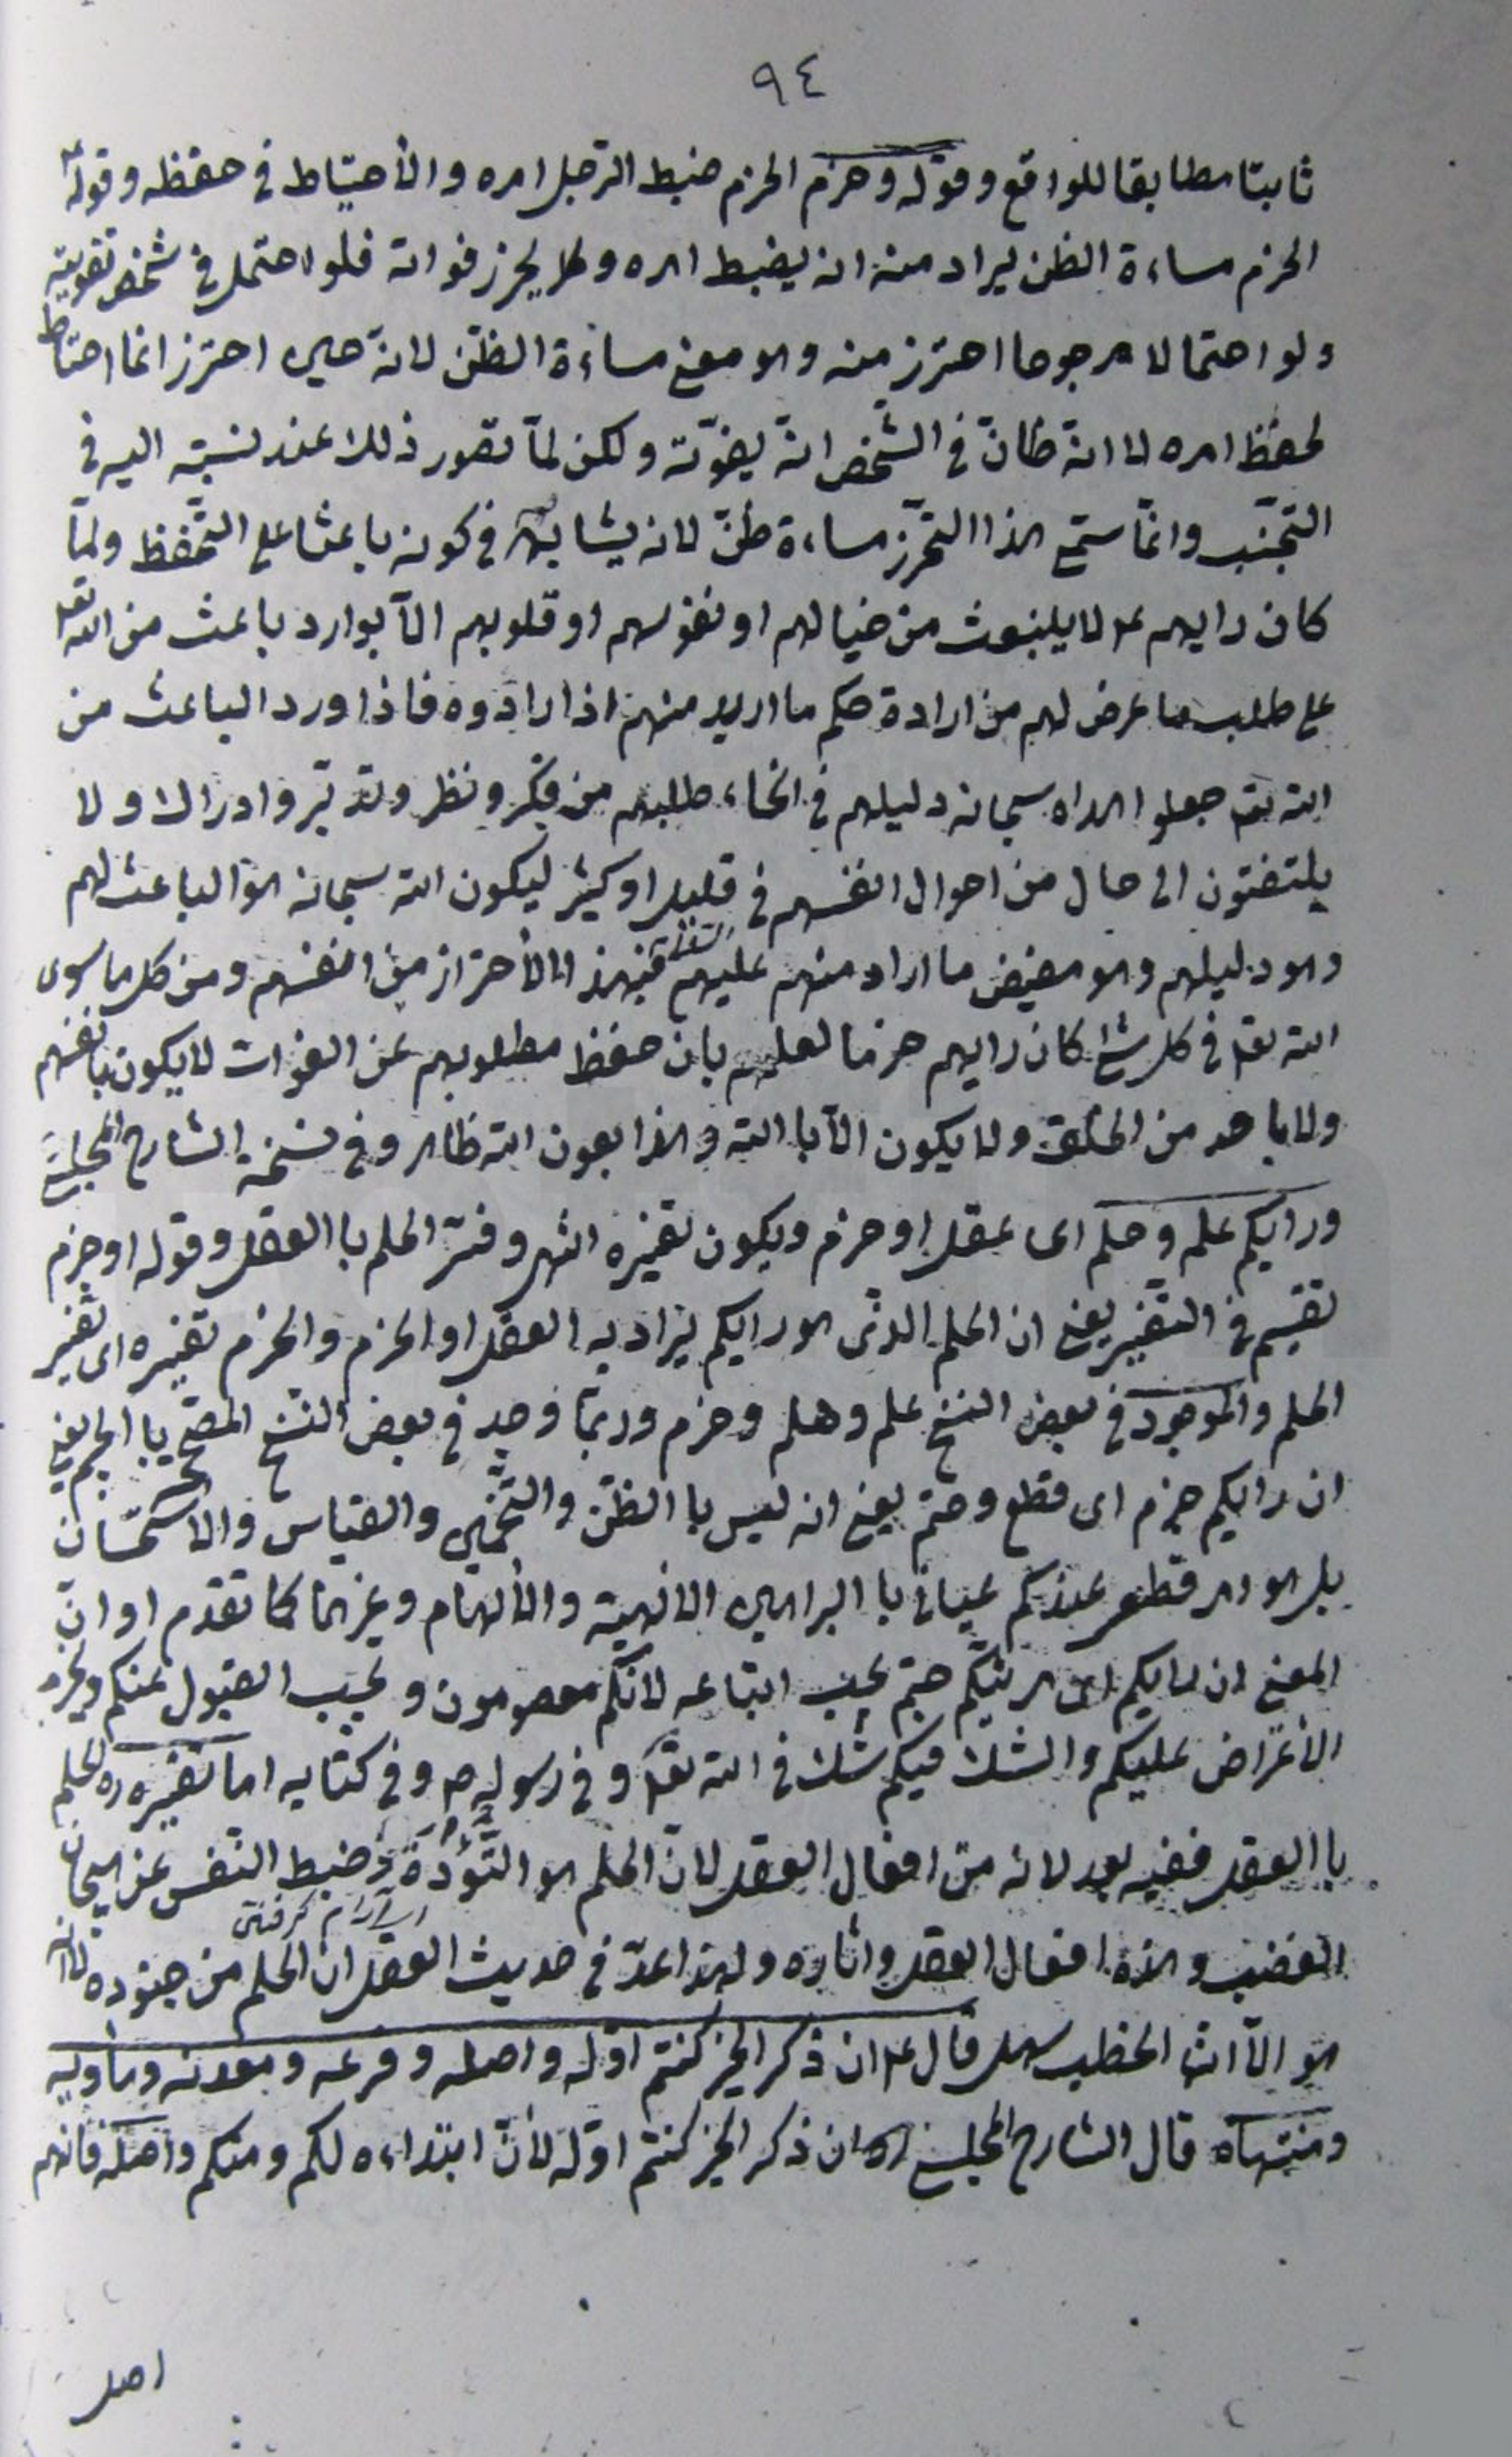 ٩٤
ثابتا مطابقا للواقع وقوله وحزم الحزم ضبط الرّجل امره والأحتياط فى حفظه وقوله ع
الحزم مساءة الظن يراد منه انه يضبط امره ويحرز فواته فلو احتمل فى شخص تفويته
ولو احتمالا مرجوحا احترز منه وهو معنى مساءة الظّن لانه حين احترز انما احتاط
لحفظ امره لا انه ظانّ فى الشّخص انّه يفوّته ولكن لمّا تصور ذلك عند نسبته اليه فى
التجنّب وانّما ستمى هذا التحرّز مساءة ظنّ لانه يشابهه فى كونه باعثا على التّحفظ ولمّا
كان رايهم ع لا ينبعث من خيالهم او نفوسهم او قلوبهم الّا بوارد باعث من الله تعالى
على طلب ما عرض لهم من ارادة حكم ما اريد منهم اذا ارادوه فاذا ورد الباعث من
الله تعم جعلوا الله سبحانه دليلهم فى انحاء طلبهم من فكر ونظر وتدبّر وادراك ولا
يلتفتون الى حال من احوال انفسهم فى قليل او كثير ليكون الله سبحانه هو الباعث لهم
وهو دليلهم وهو مفيض ما اراد منهم عليهم فبهذا الأحتراز من انفسهم ومن كل ما سوى
الله تعالى فى كل شئ كان رايهم حزما لعلمهم بان حفظ مطلوبهم عن الفوات لا يكون بانفسهم
ولا باحد من الخلق ولا يكون الّا باالله وهذا بعون الله ظاهر وفى نسخة الشارح المجلسى
ورايكم علم وحلم اى عقل او حزم ويكون تفسيره انتهى وفسّر الحلم باالعقل وقوله او حزم
تقسيم فى التفسير يعنى ان الحلم الذى هو رايكم يراد به العقل او الحزم والحزم تفسيره اى تفسير
الحلم والموجود فى بعض النسخ علم وحلم وحزم وربّما وجد فى بعض النسخ المصحّح باالجيم يعنى
ان رايكم جزم اى قطع وحتم يعنى انه ليس باالظّن والتّخمين والقياس والاستحسان
بل هو امر قطعى عندكم عيانى باالبراهين الالهية والألهام وغيرهما كما تقدم او انّ
المعنى ان رايكم اى مرئيّكم حتم يجب اتباعه لانّكم معصومون ويجب القبول عنكم ويحرم
الأعتراض عليكم والشك فيكم شك فى الله تعالى وفى رسوله ص وفى كتابه اما تفسيره ره للحلم
باالعقل ففيه بعد لانه من افعال العقل لانّ الحلم هو التّؤدة وضبط النّفس عن هيجان
اى آرام گرفتن
الغضب وهذه افعال العقل واثاره ولهذا عدّ فى حديث العقل ان الحلم من جنوده لا انه
هو الّا انّ الخطب سهل قال ع ان ذكر الخير كنتم اوّله واصله وفرعه ومعدنه ومأويه
ومنتهاه قال الشارح المجلسى ره ان ذكر الخير كنتم اوّله لأنّ ابتداءه لكم ومنكم واصله فانهم
اصل